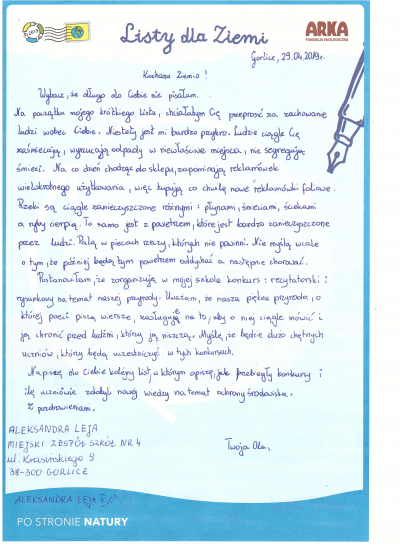 Listy dla Ziemi
ARKA
FUNDACJA EKOLOGICZNA
Gorlice, 29.04.2019r.
Kochana Ziemio!
Wybacz, że długo do Ciebie nie pisałam.
Na początku mojego krótkiego listu, chciałabym Cię przeprosić za zachowanie
ludzi wobec Ciebie. Niestety jest mi bardzo przykro. Ludzie ciągle Cię
zaśmiecają, wyrzucają odpady w niewłaściwe miejsca, nie segregują
śmieci. Na co dzień chodząc do sklepu, zapominają reklamówek
wielokrotnego użytkowania, więc kupują co chwilę nowe reklamówki foliowe.
Rzeki są ciągle zanieczyszczone różnymi: płynami, śmieciami, ściekami
a ryby cierpią. To samo jest z powietrzem, które jest bardzo zanieczyszczone
przez ludzi. Palą w piecach rzeczy, których nie powinni. Nie myślą wcale
o tym, że później będą tym powietrzem oddychać a następnie chorować.
Postanowiłam, że zorganizują w mojej szkole konkurs: recytatorski i
rysunkowy na temat naszej przyrody. Uważam, że nasza piękna przyroda, o
której poeci piszą wiersze, zasługuje na to, aby o niej ciągle mówić i
ją chronić przed ludźmi, którzy ją niszczą. Myślę, że będzie dużo chętnych
uczniów, którzy będą uczestniczyć w tych konkursach.
Napiszę do Ciebie kolejny list, w którym opiszę, jak przebiegły konkursy i
ile uczniowie zdobyli nowej wiedzy na temat ochrony środowiska.
Z pozdrowieniami.
Twoja Ola,
ALEKSANDRA LEJA
MIEJSKI ZESPÓŁ SZKÓŁ NR 4
ul. Krasińskiego 9
38-300 GORLICE
ALEKSANDRA LEJA V
PO STRONIE NATURY